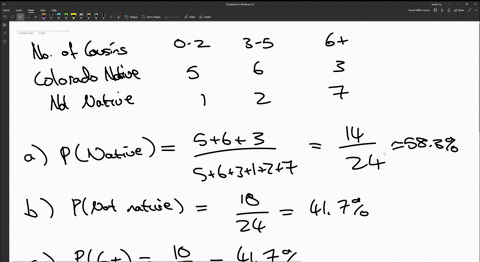 No. of Cousins 0-2 3-5 6+
Colorado Native 5 6 3
Not Native 1 2 7
a) P(Native) = 5+6+3 / 5+6+3+1+2+7 = 14 / 24 ≈58.3%
b) P(Not native) = 10 / 24 = 41.7%
P(6+) = 10 = 41.7%